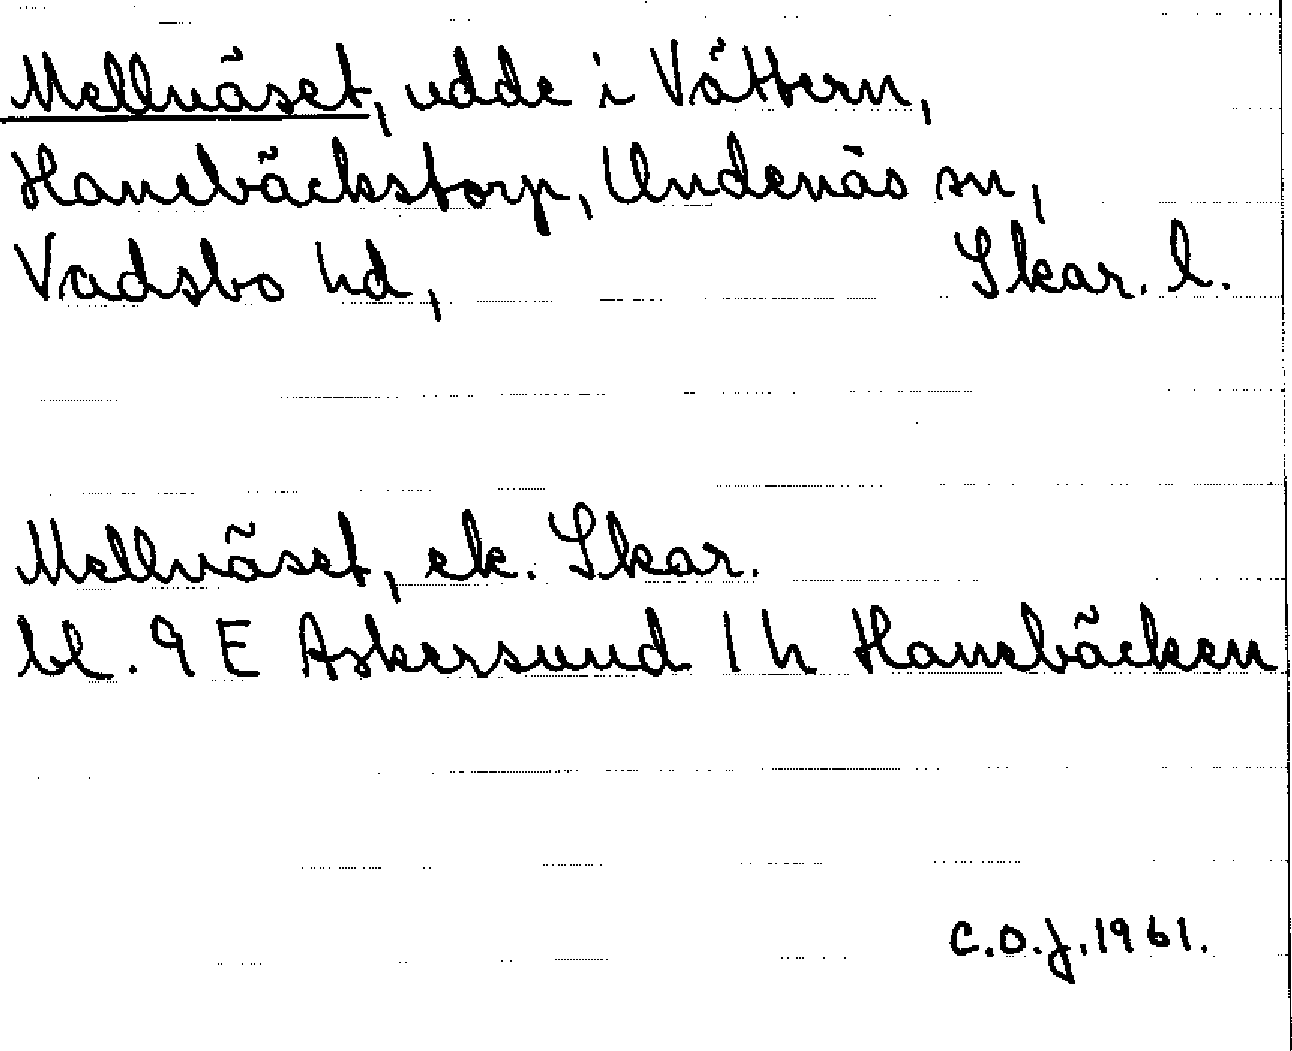 Mellnäset, udde i Vättern,
Hanebäckstorp, Undenäs sn,
Vadsbo hd, Skar. l.
Mellnäset, ek. Skar.
bl. 9 E Askersund 1 h Hanebäcken
C.O.J. 1961.